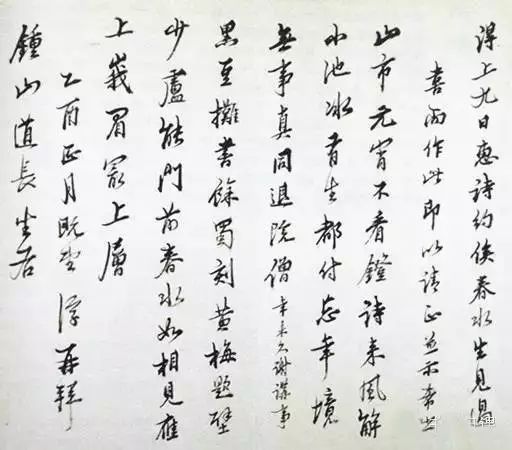 得上九日惠詩約俟春水生見過
喜而作此即以請正並示希之
山市元宵不看鐙詩来風解
小池冰有生都付忘年境
無事真同退院僧年来久謝講事
黑豆攤書餘蜀刻黄梅題壁
少盧能門前春水如相見應
上峩眉冣上層
乙酉正月既望 浮再拜
鍾山道長坐右